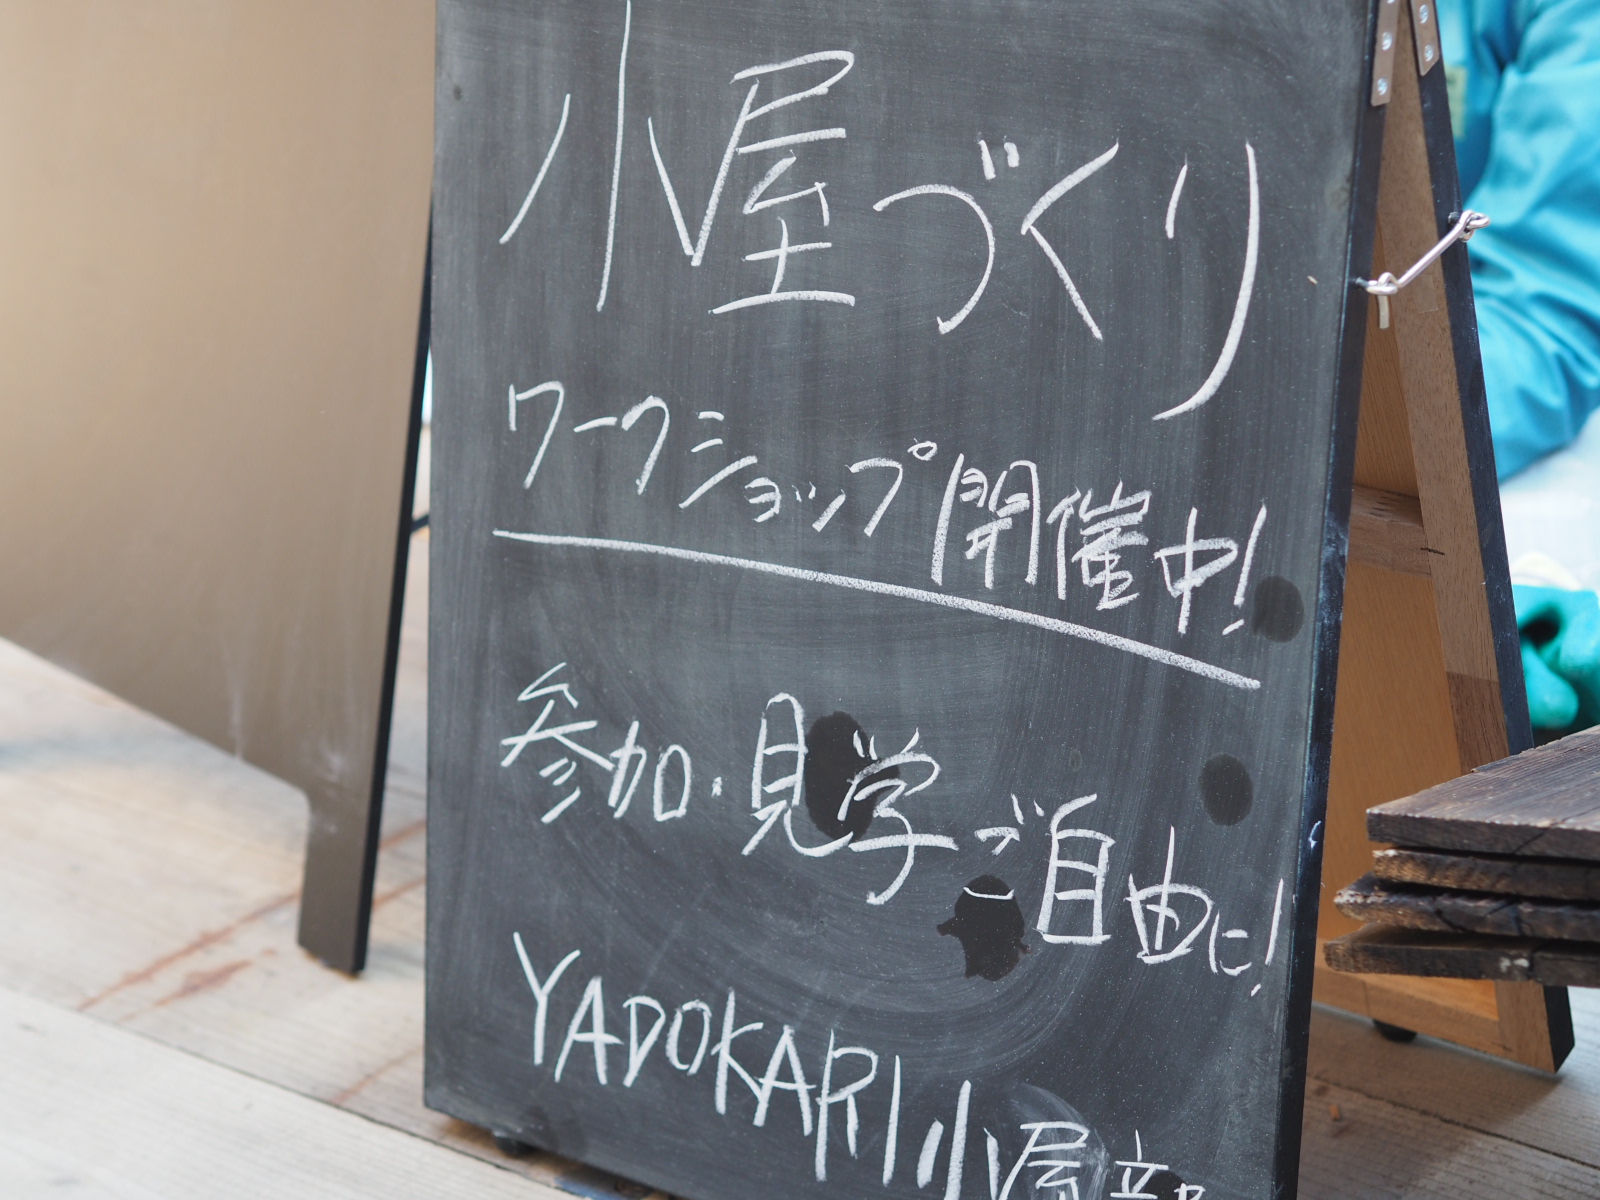 小屋づくり
ワークショップ開催中!
参加・見学ご自由に!
YADOKARI小屋部